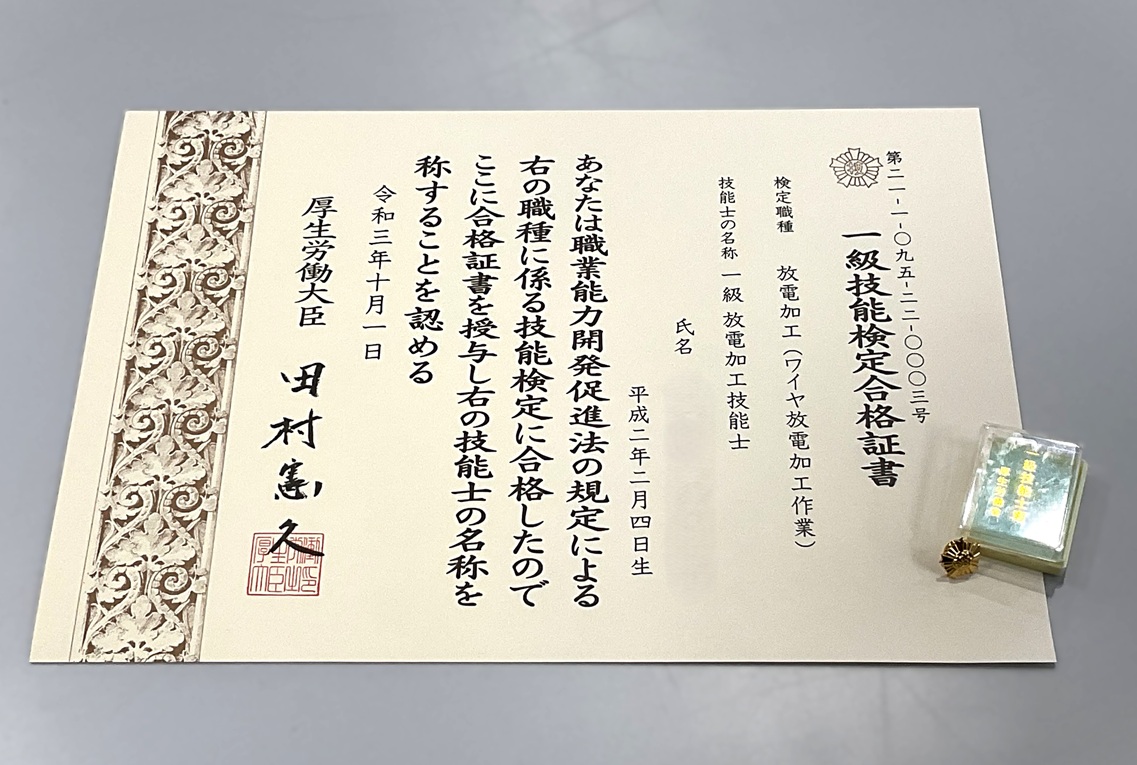 第二一-一-〇九五-二二-〇〇〇三号
一級技能検定合格証書
検定職種 放電加工(ワイヤ放電加工作業)
技能士の名称 一級 放電加工技能士
氏名
平成二年二月四日生
あなたは職業能力開発促進法の規定による
右の職種に係る技能検定に合格したので
ここに合格証書を授与し右の技能士の名称を
称することを認める
令和三年十月一日
厚生労働大臣 田村憲久
一級技能士章
厚生労働省